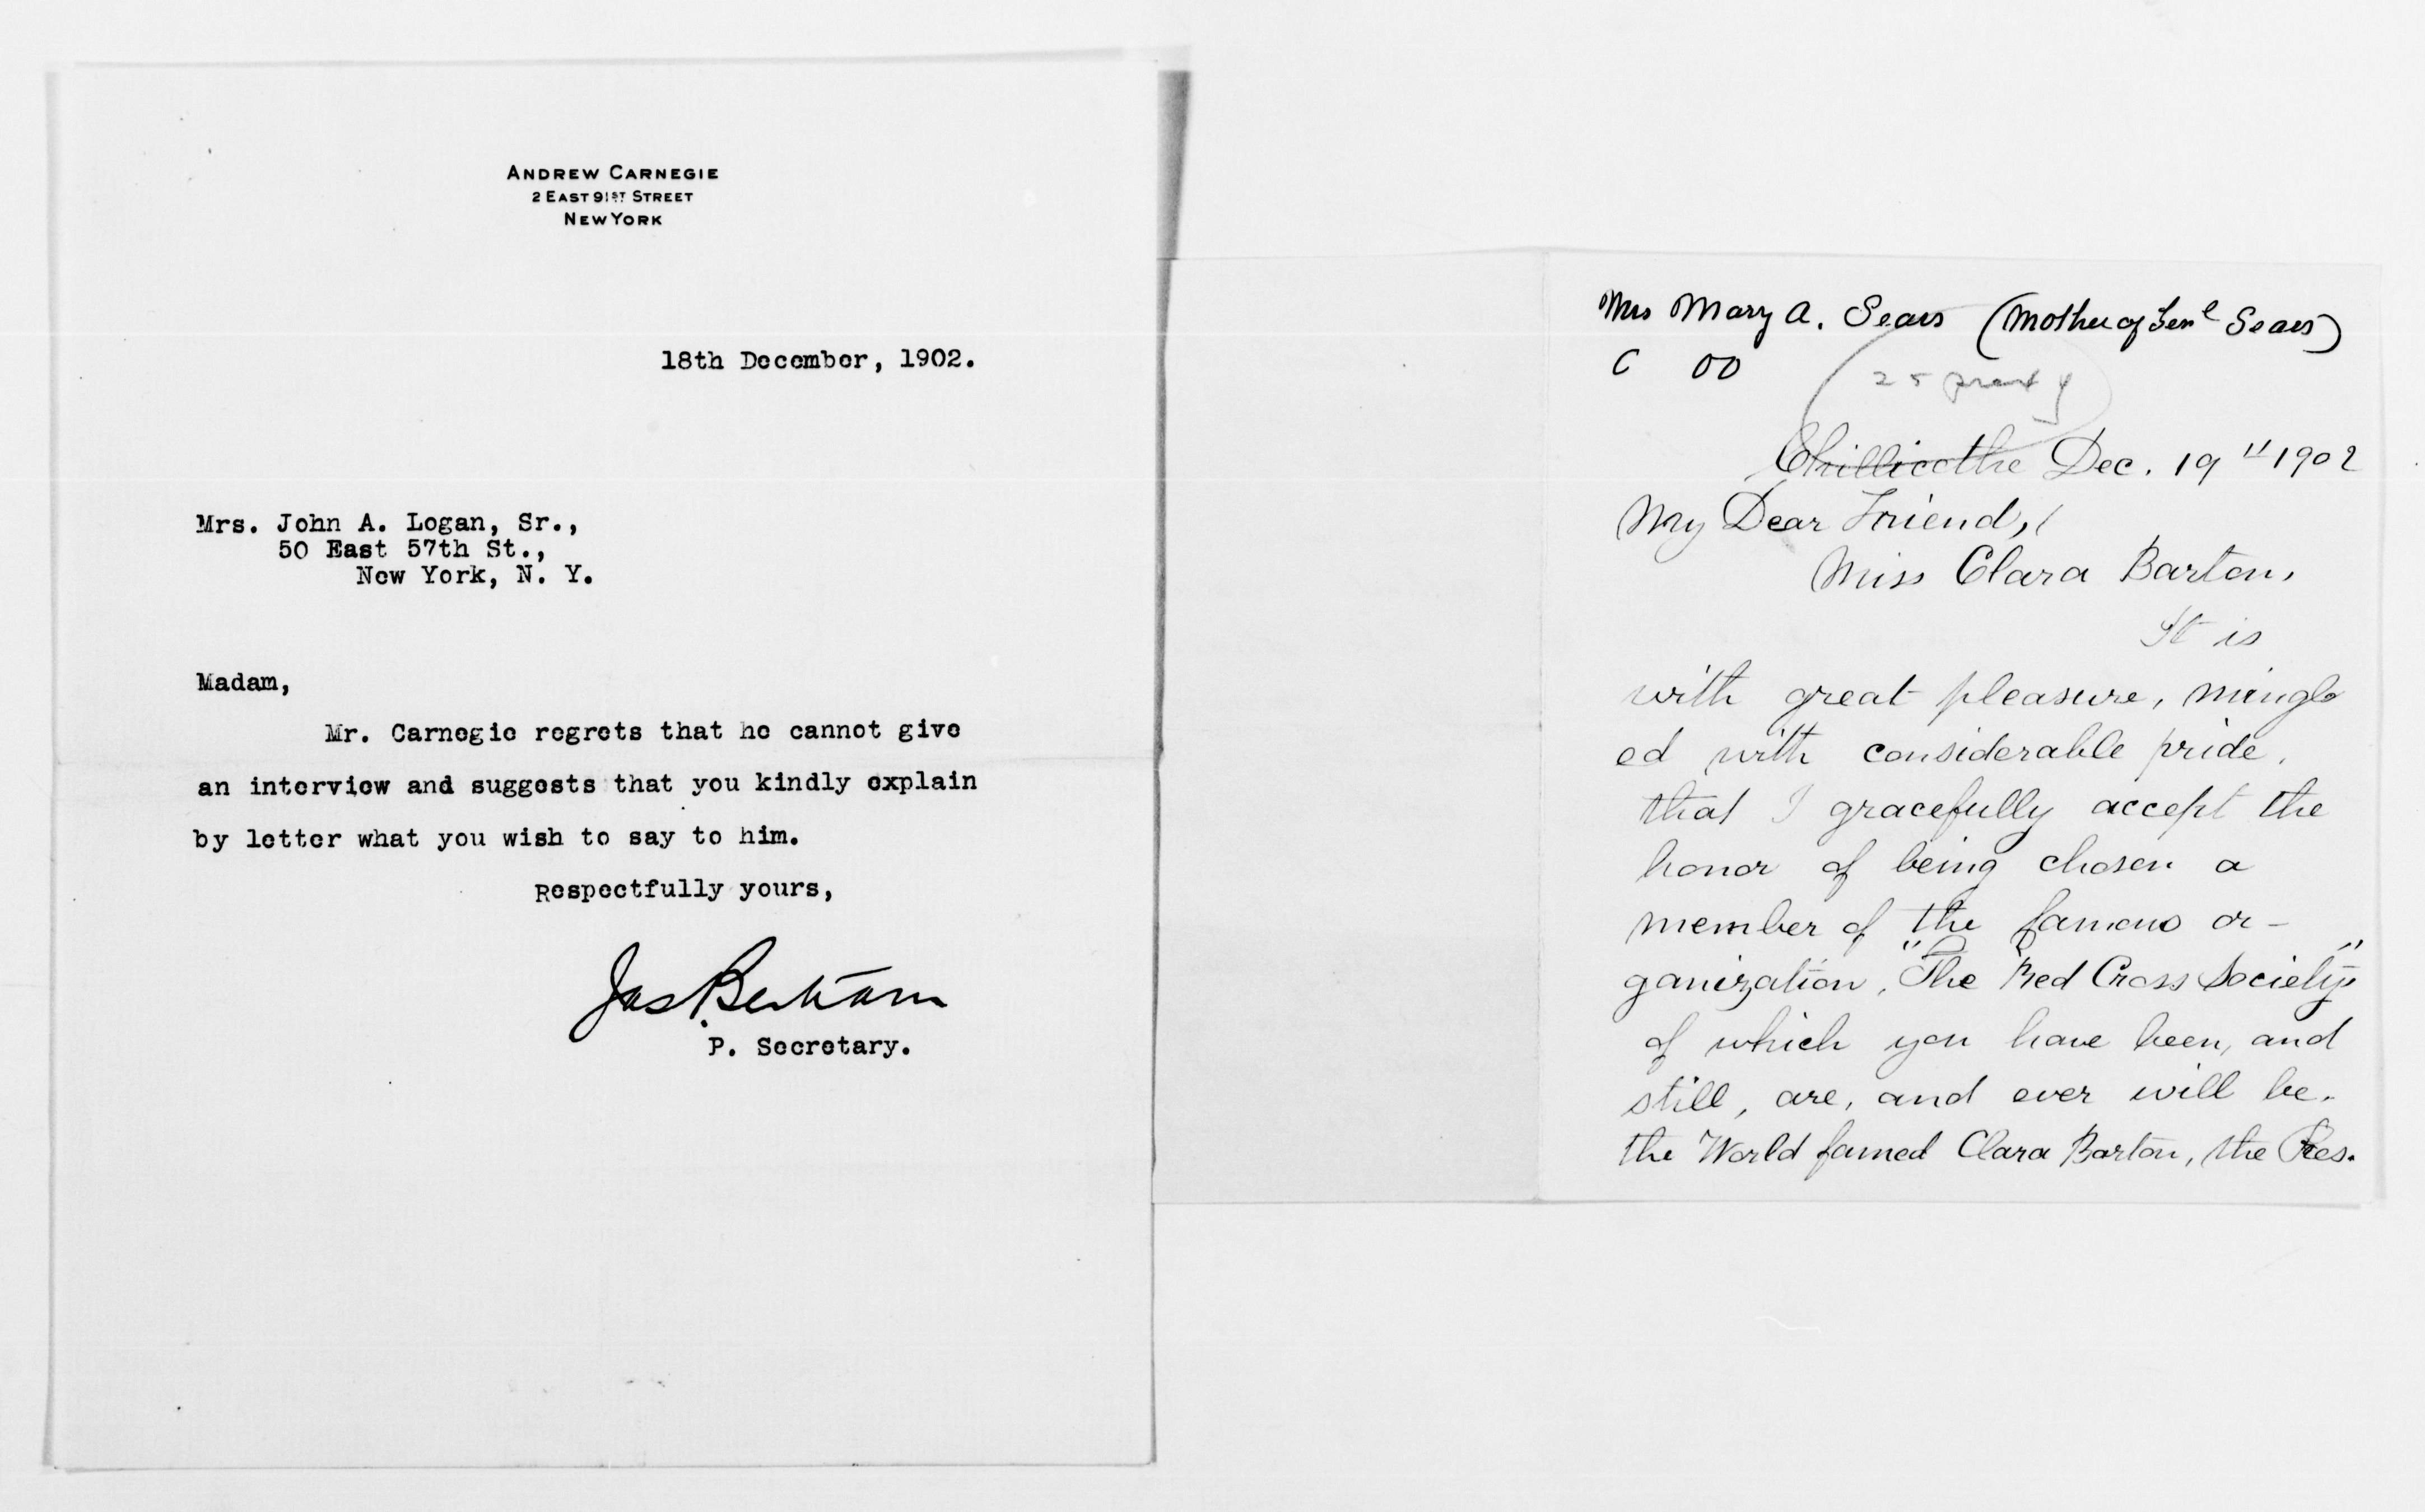 ANDREW CARNEGIE
2 EAST 91ST STREET
NEW YORK
18th December, 1902.
Mrs. John A. Logan, Sr.,
50 East 57th St.,
New York, N. Y.
Madam,
Mr. Carnegie regrets that he cannot give
an interview and suggests that you kindly explain
by letter what you wish to say to him.
Respectfully yours,
Jas Bertram
P. Secretary.
Mrs Mary A. Sears (Mother of Genl Sears)
C 00
25
Chillicothe Dec. 19" 1902
My Dear Friend,
Miss Clara Barton,
It is
with great pleasure, mingl
ed with considerable pride,
that I gracefully accept the
honor of being chosen a
member of the famous or-
ganization, "The Red Cross Society"
of which you have been, and
still, are, and ever will be.
the World famed Clara Barton, the Pres.